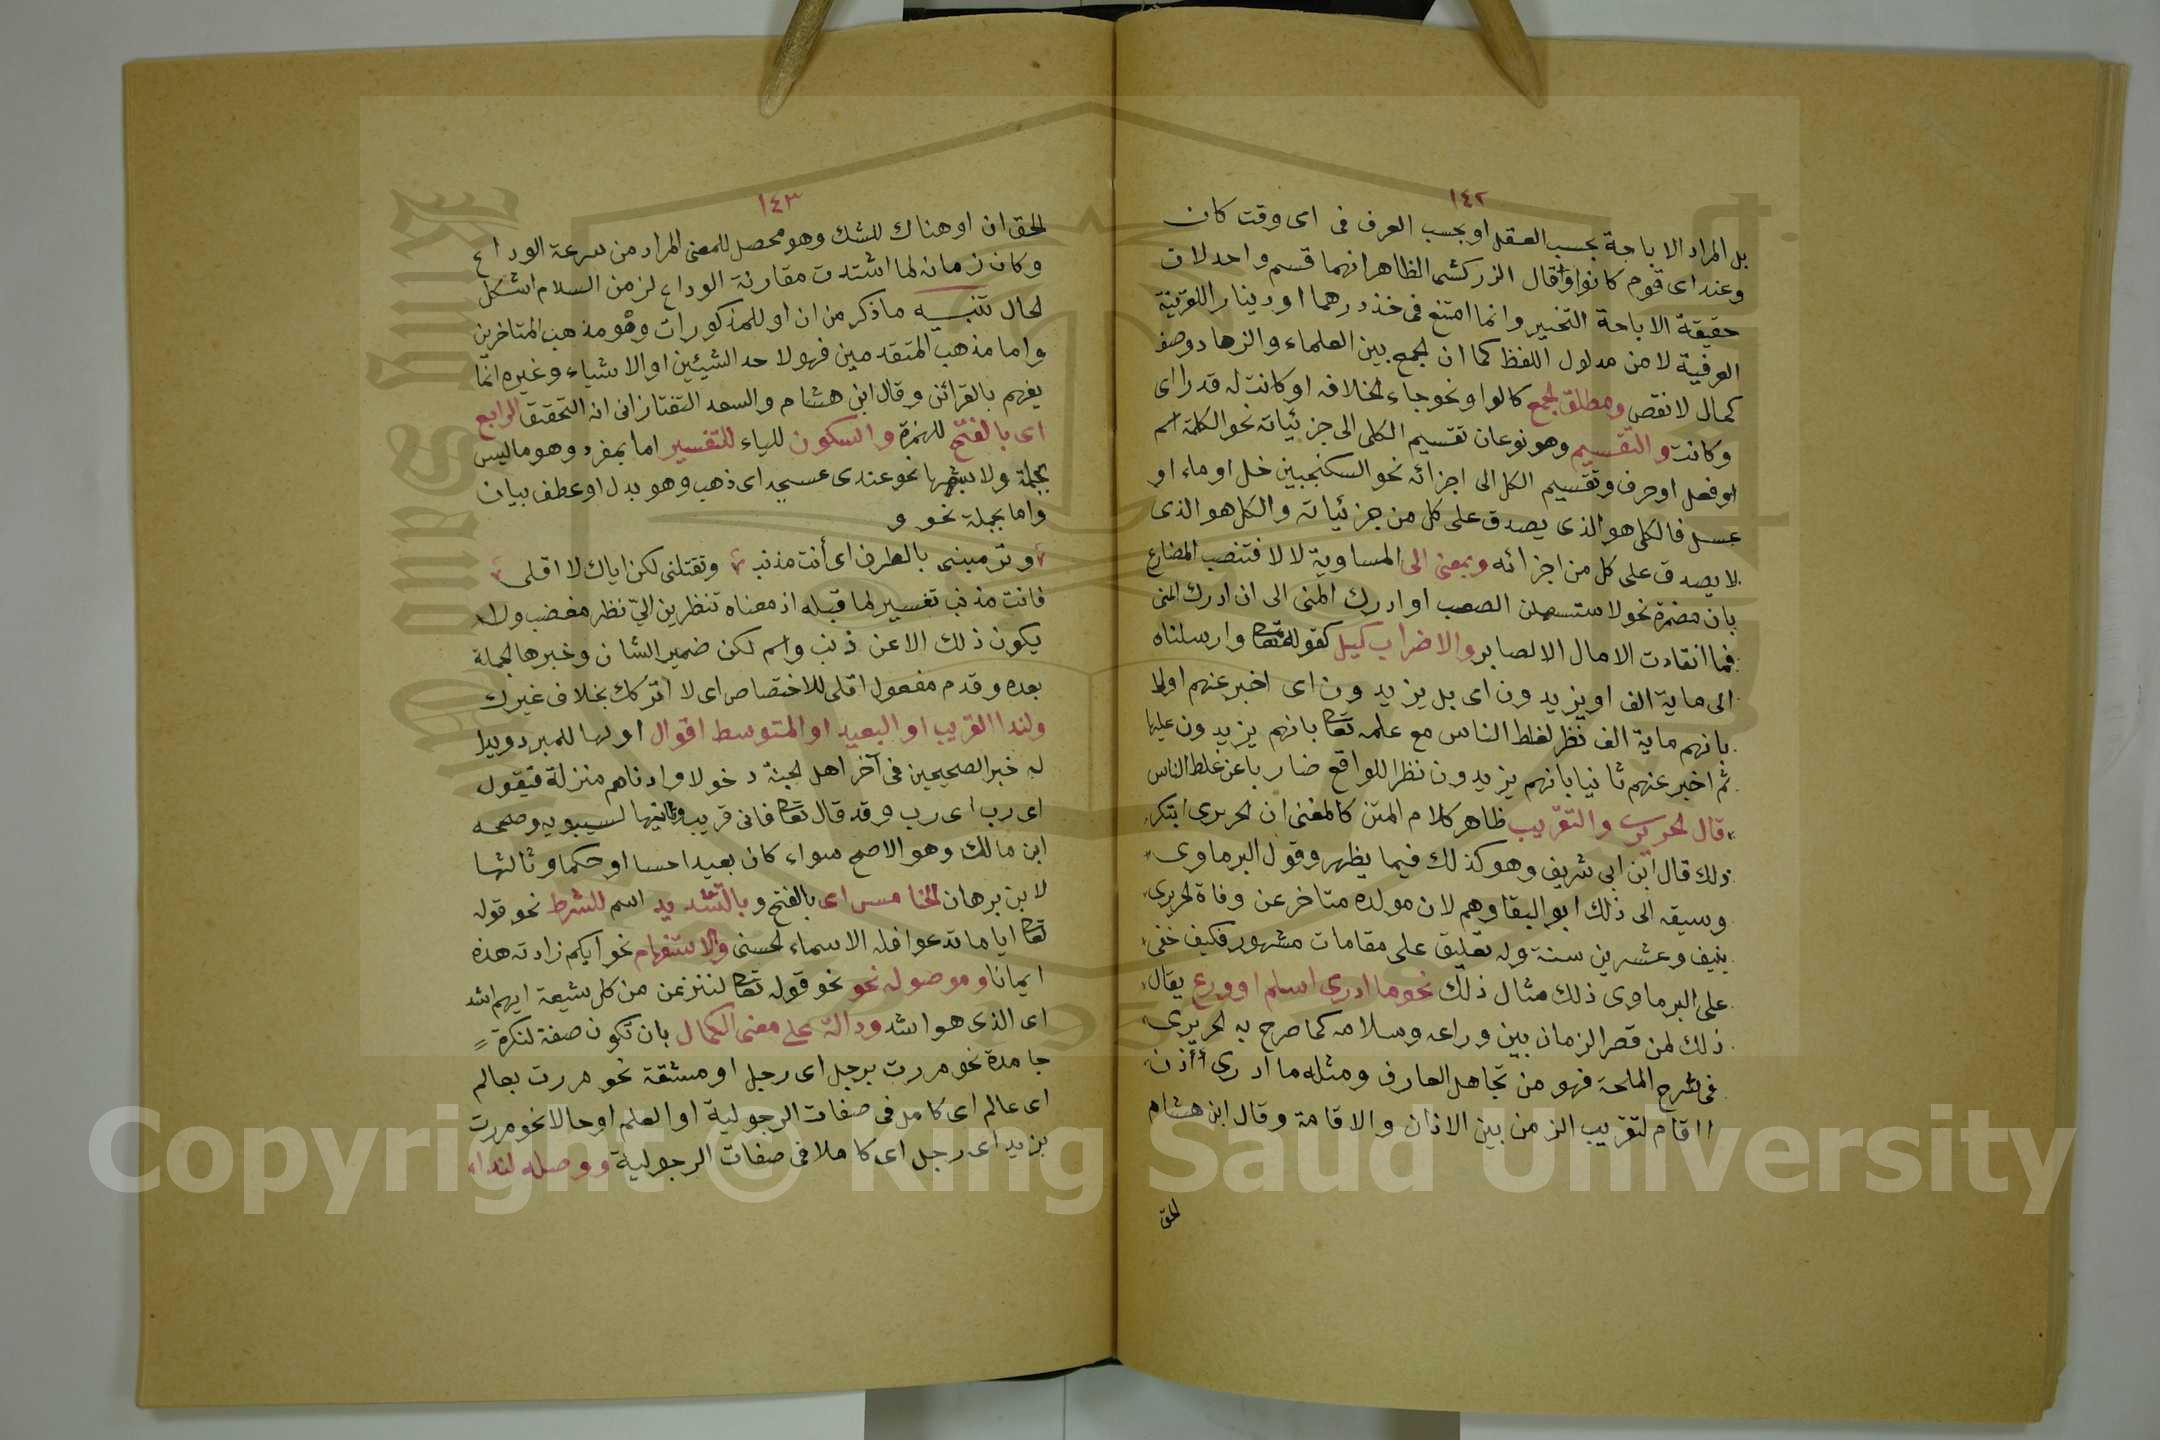 ١٤٢
بل المراد الاباحة بحسب العقل او بحسب العرف فى اى وقت كان
وعند اى قوم كانوا وقال الزركشى الظاهر انهما قسم واحد لان
حقيقة الاباحة التخيير وانما امتنع فى خذ درهما او دينارا للقرينة
العرفية لا من مدلول اللفظ كما ان الجمع بين العلماء والزهاد وصف
كمال لا نقص ومطلق الجمع كالواو نحو جاء الخلافة او كانت له قدرا اى
وكانت والتقسيم وهو نوعان تقسيم الكلى الى جزئياته نحو الكلمة اسم
او فعل او حرف وتقسيم الكل الى اجزائه نحو السكنجبين خل او ماء او
عسل فالكلى هو الذى يصدق على كل من جزئياته والكل هو الذى
لا يصدق على كل من اجزائه وبمعنى الى المساوية لالا فتنصب المضارع
بان مضمرة نحو لاستسهلن الصعب او ادرك المنى الى ان ادرك المنى
فما انقادت الامال الا لصابر والاضراب كبل كقوله تعا وارسلناه
الى ماية الف او يزيدون اى بل يزيدون اى اخبر عنهم اولا
بانهم ماية الف نظر لغلط الناس مع علمه تعا بانهم يزيدون عليها
ثم اخبر عنهم ثانيا بانهم يزيدون نظرا للواقع ضاربا عن غلط الناس
قال الحريرى والتقريب ظاهر كلام المتن كالمغنى ان الحريرى ابتكر
ذلك قال ابن ابى شريف وهو كذلك فيما يظهر وقول البرماوى
وسبقه الى ذلك ابو البقا وهم لان مولده متاخر عن وفاة الحريرى
بنيف وعشرين سنة وله تعليق على مقامات مشهور فكيف خفى
على البرماوى ذلك مثال ذلك نحو ما ادرى اسلم او ودع يقال
ذلك لمن قصر الزمان بين وراعه وسلامه كما صرح به الحريرى
فى شرح الملحة فهو من تجاهل العارف ومثله ما ادرى أأذن
ااقام لتقريب الزمن بين الاذان والاقامة وقال ابن هشام
الحق
١٤٣
الحق ان او هناك للشك وهو محصل للمعنى المراد من سرعة الوداع
وكان زمانه لما اشتدت مقارنة الوداع لزمن السلام اشكل
الحال تنبيه ما ذكر من ان او للمذكورات وهو مذهب المتاخرين
واما مذهب المتقدمين فهو لاحد الشيئين او الاشياء وغيره انما
يفهم بالقرائن وقال ابن هشام والسعد التفتازانى انه التحقيق الرابع
اى بالفتح للهمزة والسكون للياء للتفسير اما بمفرد وهو ما ليس
بجملة ولا بشبهها نحو عندى عسجد اى ذهب وهو بدل او عطف بيان
واما بجملة نحو و
وترمينى بالطرف اى أنت مذنب وتقتلنى لكن اياك لا اقلى
فانت مذنب تفسير لما قبله اذ معناه تنظرين الىّ نظر مغضب ولا
يكون ذلك الا عن ذنب واسم لكن ضمير الشان وخبرها الجملة
بعده وقدم مفعول اقلى للاختصاص اى لا اتركك بخلاف غيرك
ولندا القريب او البعيد او المتوسط اقوال اولها للمبرد ويدل
له خبر الصحيحين فى آخر اهل الجنة دخولا وادناهم منزلة فيقول
اى رب اى رب وقد قال تعا فانى قريب وثانيها لسيبويه وصححه
ابن مالك وهو الاصح سواء كان بعيدا حسا او حكما وثالثها
لابن برهان الخامس اى بالفتح وبالتشديد اسم للشرط نحو قوله
تعا ايا ما تدعوا فله الاسماء الحسنى والاستفهام نحو ايكم زادته هذه
ايمانا وموصوله نحو نحو قوله تعا لننزعن من كل شيعة ايهم اشد
اى الذى هو اشد ودالة على معنى الكمال بان تكون صفة لنكرة
جامدة نحو مررت برجل اى رجل او مشتقة نحو مررت بعالم
اى عالم اى كامل فى صفات الرجولية او العلم او حالا نحو مررت
بزيد اى رجل اى كاملا فى صفات الرجولية ووصله لنداء
Copyright © King Saud University